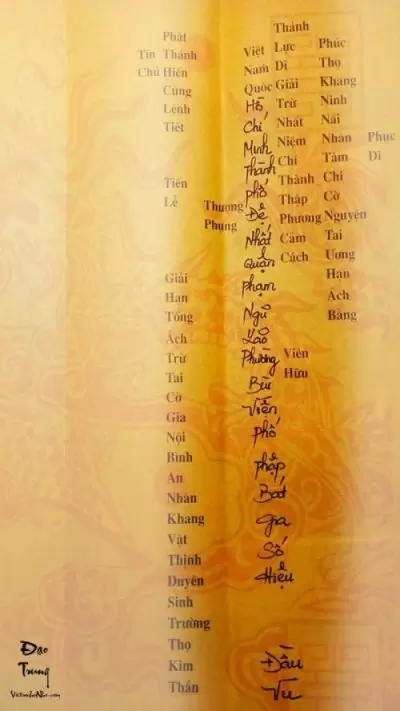 Phuc Di
Phúc Thọ Khang Ninh Nãi Nhân Tâm Chi Cờ Nguyện Tai Ương Hạn Ách Bằng
Thánh Lực Dĩ Giải Trừ Nhất Niệm Chí Thành Thập Phương Cảm Cách
Viên Hữu
Việt Nam Quốc Hồ Chí Minh Thành phố Đệ Nhất Quận Phạm Ngũ Lão Phường Bùi Viện phố pháp Bát gia Số Hiệu
Đầu Vũ
Thượng Phụng
Phật Thánh Hiến Cung Lệnh Tiết
Tiến Lễ
Giải Hạn Tống Ách Trừ Tai Cờ Gia Nội Bình An Nhân Khang Vật Thịnh Duyên Sinh Trường Thọ Kim Thần
Tín Chủ
Đạo Trung